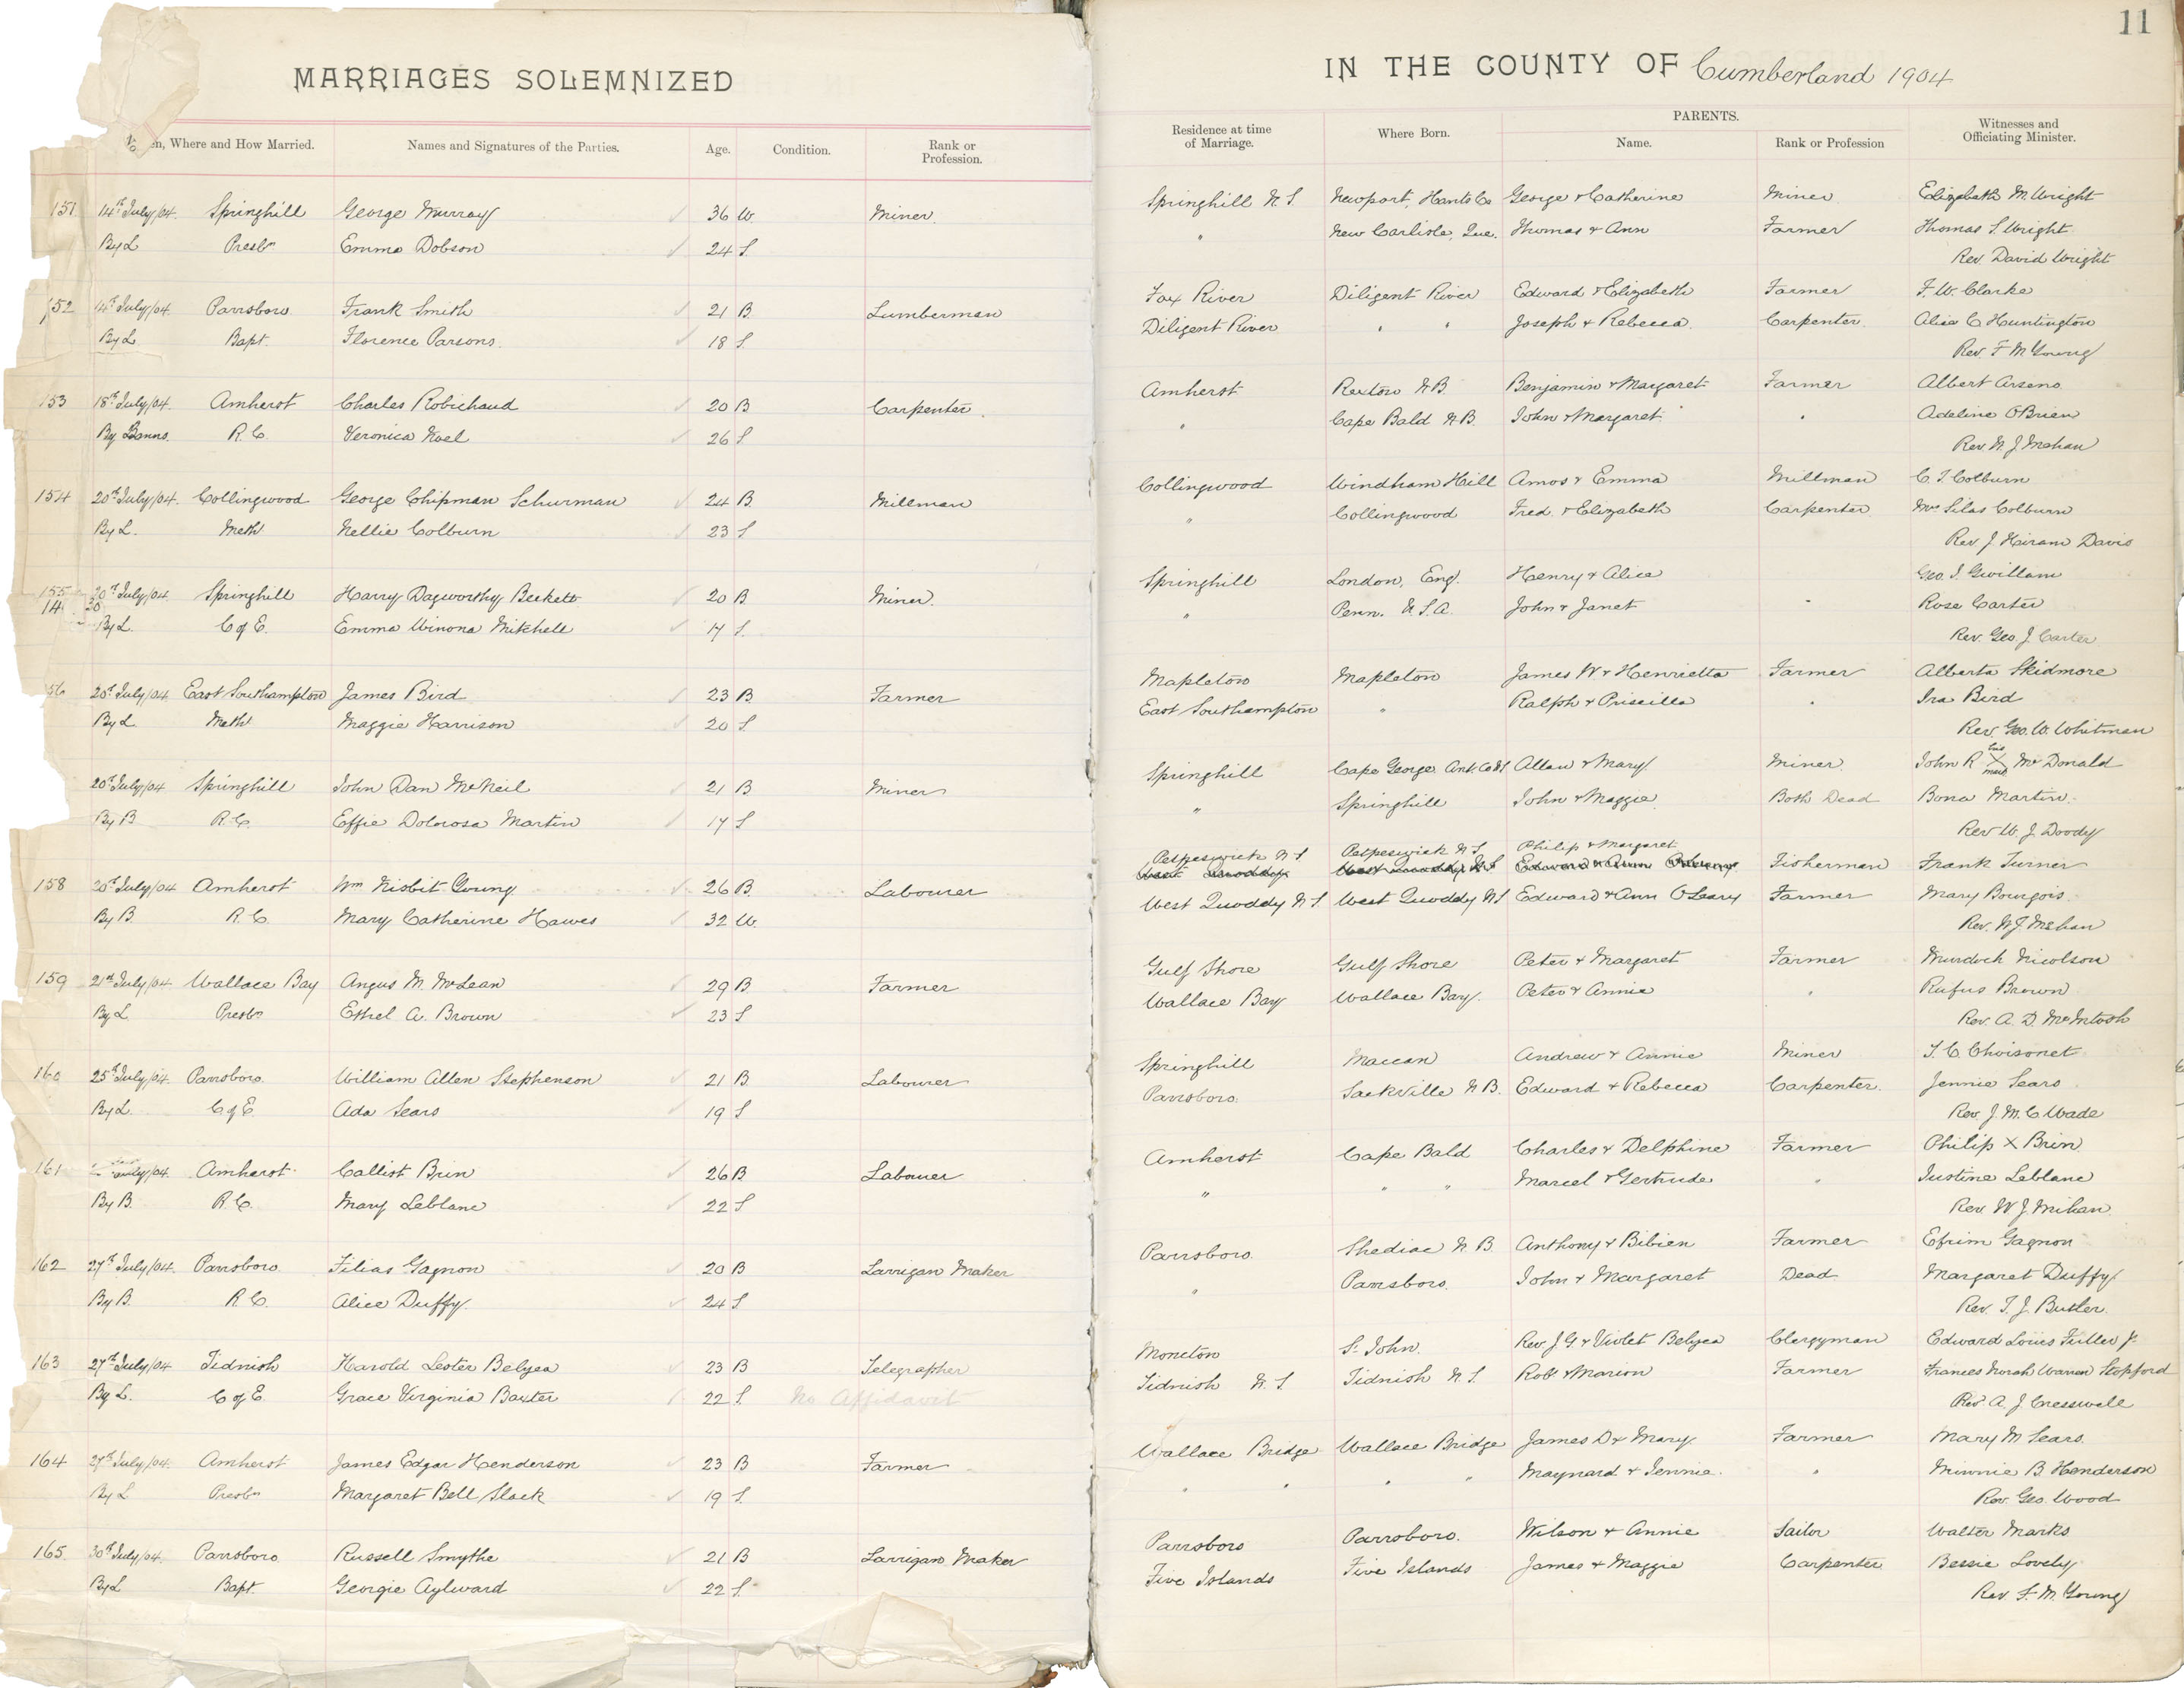 11
MARRIAGES SOLEMNIZED IN THE COUNTY OF Cumberland 1904
When, Where and How Married. Names and Signatures of the Parties. Age. Condition. Rank or Profession. Residence at time of Marriage. Where Born. PARENTS. Name. Rank or Profession Witnesses and Officiating Minister.
151 14th July/04. Springhill George Murray 36 W. Miner. Springhill N.S. Newport, Hants Co George & Catherine Miner Elizabeth M. Wright
By L Presbn Emma Dobson 24 S. " New Carlisle, Que. Thomas & Ann Farmer Thomas S. Wright
Rev. David Wright
152 14th July/04. Parrsboro Frank Smith 21 B. Lumberman Fox River Diligent River Edward & Elizabeth Farmer F. W. Clarke
By L Bapt. Florence Parsons. 18 S. Diligent River " " Joseph & Rebecca. Carpenter. Alice C Huntington
Rev. F M Young
153 18th July/04. Amherst Charles Robichaud 20 B Carpenter. Amherst Rexton N.B. Benjamin & Margaret Farmer Albert Arseno
By Banns. R.C. Veronica Noel 26 S " Cape Bald N.B. John & Margaret " Adeline O'Brien
Rev. W. J. Mehan
154 20th July/04. Collingwood George Chipman Schurman 24 B. Millman Collingwood Windham Hill Amos & Emma Millman C. T. Colburn
By L. Meth Nellie Colburn 23 S " Collingwood Fred. & Elizabeth Carpenter Mrs Silas Colburn
Rev J. Hiram Davis
155 20th July/04 Springhill Harry Dagworthy Beckett 20 B. Miner. Springhill London, Eng. Henry & Alice Geo. I. Gwillam
14 20
By L. C of E. Emma Winona Mitchell 17 S. " Penn. U.S.A. John & Janet " Rose Carter
Rev. Geo. J. Carter
56 20th July/04 East Southampton James Bird 23 B. Farmer Mapleton Mapleton James W & Henrietta Farmer Alberta Skidmore
By L Meth Maggie Harrison 20 S East Southampton " Ralph & Priscilla " Ira Bird
Rev. Geo. W. Whitman
20th July/04 Springhill John Dan McNeil 21 B Miner Springhill Cape George Ant. Co NS Allan & Mary Miner John R his X mark McDonald
By B R.C. Effie Dolorosa Martin 17 S " Springhill John & Maggie Both Dead Bona Martin.
Rev W. J. Doody
Petpeswick N S Petpeswick N S Philip & Margaret
158 20th July/04 Amherst Wm Nisbit Young 26 B. Labourer West Quoddy West Quoddy N S Edward & Ann Fisherman Frank Turner
By B. R.C. Mary Catherine Hawes 32 W. West Quoddy N S. West Quoddy N S Edward & Ann O'Leary Farmer Mary Bourgois.
Rev. W. J. Mehan
159 21st July/04 Wallace Bay Angus M. McLean 29 B. Farmer Gulf Shore Gulf Shore Peter & Margaret Farmer Murdock Nicolson
By L Presbn Ethel A. Brown 23 S Wallace Bay Wallace Bay. Peter & Annie " Rufus Brown
Rev. A. D. McIntosh
160 25th July/04. Parrsboro. William Allen Stephenson 21 B. Labourer Springhill Maccan Andrew & Annie Miner T. C. Choisonet
By L. C of E. Ada Sears 19 S Parrsboro. Sackville N.B. Edward & Rebecca Carpenter. Jennie Sears
Rev. J. M. C. Wade
161 July/04. Amherst. Callist Brin 26 B Labourer Amherst Cape Bald Charles & Delphine Farmer Philip X Brin
By B. R.C. Mary Leblanc 22 S " " " Marcel & Gertrude " Justine Leblanc
Rev. W J. Mihan
162 27th July/04. Parrsboro Filias Gagnon 20 B Larrigan Maker Parrsboro. Shediac N.B. Anthony & Bibien Farmer Efrim Gagnon
By B. R.C. Alice Duffy. 24 S. " Parrsboro. John & Margaret Dead Margaret Duffy
Rev. T. J. Butler.
163 27th July/04 Tidnish Harold Lester Belyea 23 B Telegrapher Moncton St. John. Rev J G & Violet Belyea Clergyman Edward Louis Fuller Jr
By L. C of E. Grace Virginia Baxter 22 S. No Affidavit Tidnish N.S. Tidnish N.S. Robt & Marion Farmer Frances Norah Warren Stopford
Rev. A. J. Cresswell
164 27th July/04. Amherst James Edgar Henderson 23 B Farmer Wallace Bridge Wallace Bridge James D & Mary Farmer Mary M Sears.
By L Presbn Margaret Bell Slack 19 S. " " " " Maynard & Jennie. " Minnie B. Henderson
Rev. Geo. Wood
165. 30th July/04. Parrsboro Russell Smythe 21 B Larrigan Maker Parrsboro Parrsboro. Wilson & Annie Sailor Walter Marks
By L Bapt. Georgie Aylward 22 S. Five Islands Five Islands James & Maggie Carpenter Bessie Lovely
Rev. F. M. Young